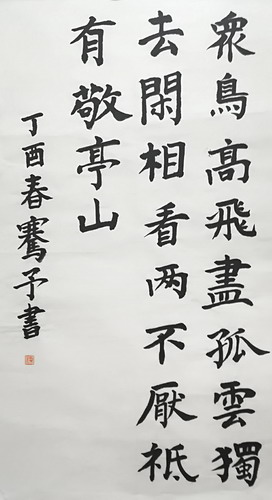 衆鳥高飛盡孤雲獨
去閑相看两不厭祗
有敬亭山
丁酉春騫予書